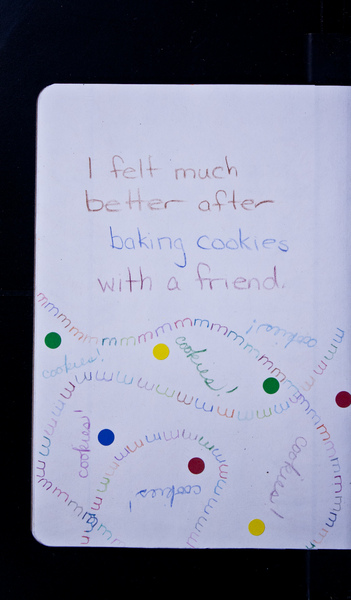 I felt much
better after
baking cookies
with a friend.
mmmmmmmmmmmmmmmm
cookies!
cookies!
cookies!
cookies!
cookies!
cookies!